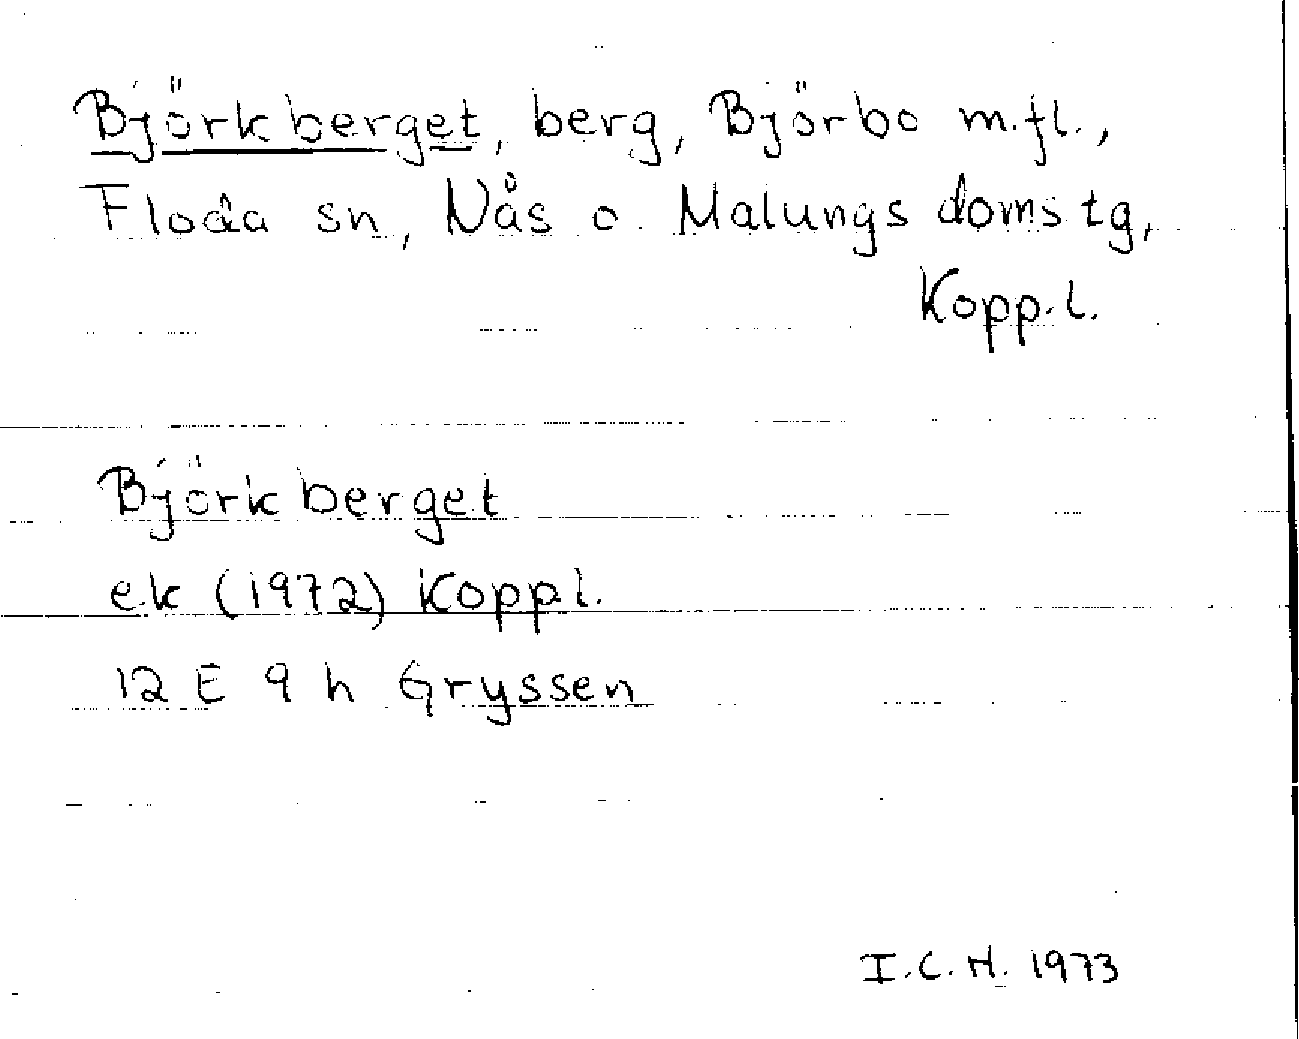 Björkberget, berg, Björbo m.fl.,
Floda sn, Nås o. Malungs domstg,
Kopp.l.
Björkberget
ek (1972) Koppl.
12 E 9 h Gryssen
I.C.H. 1973